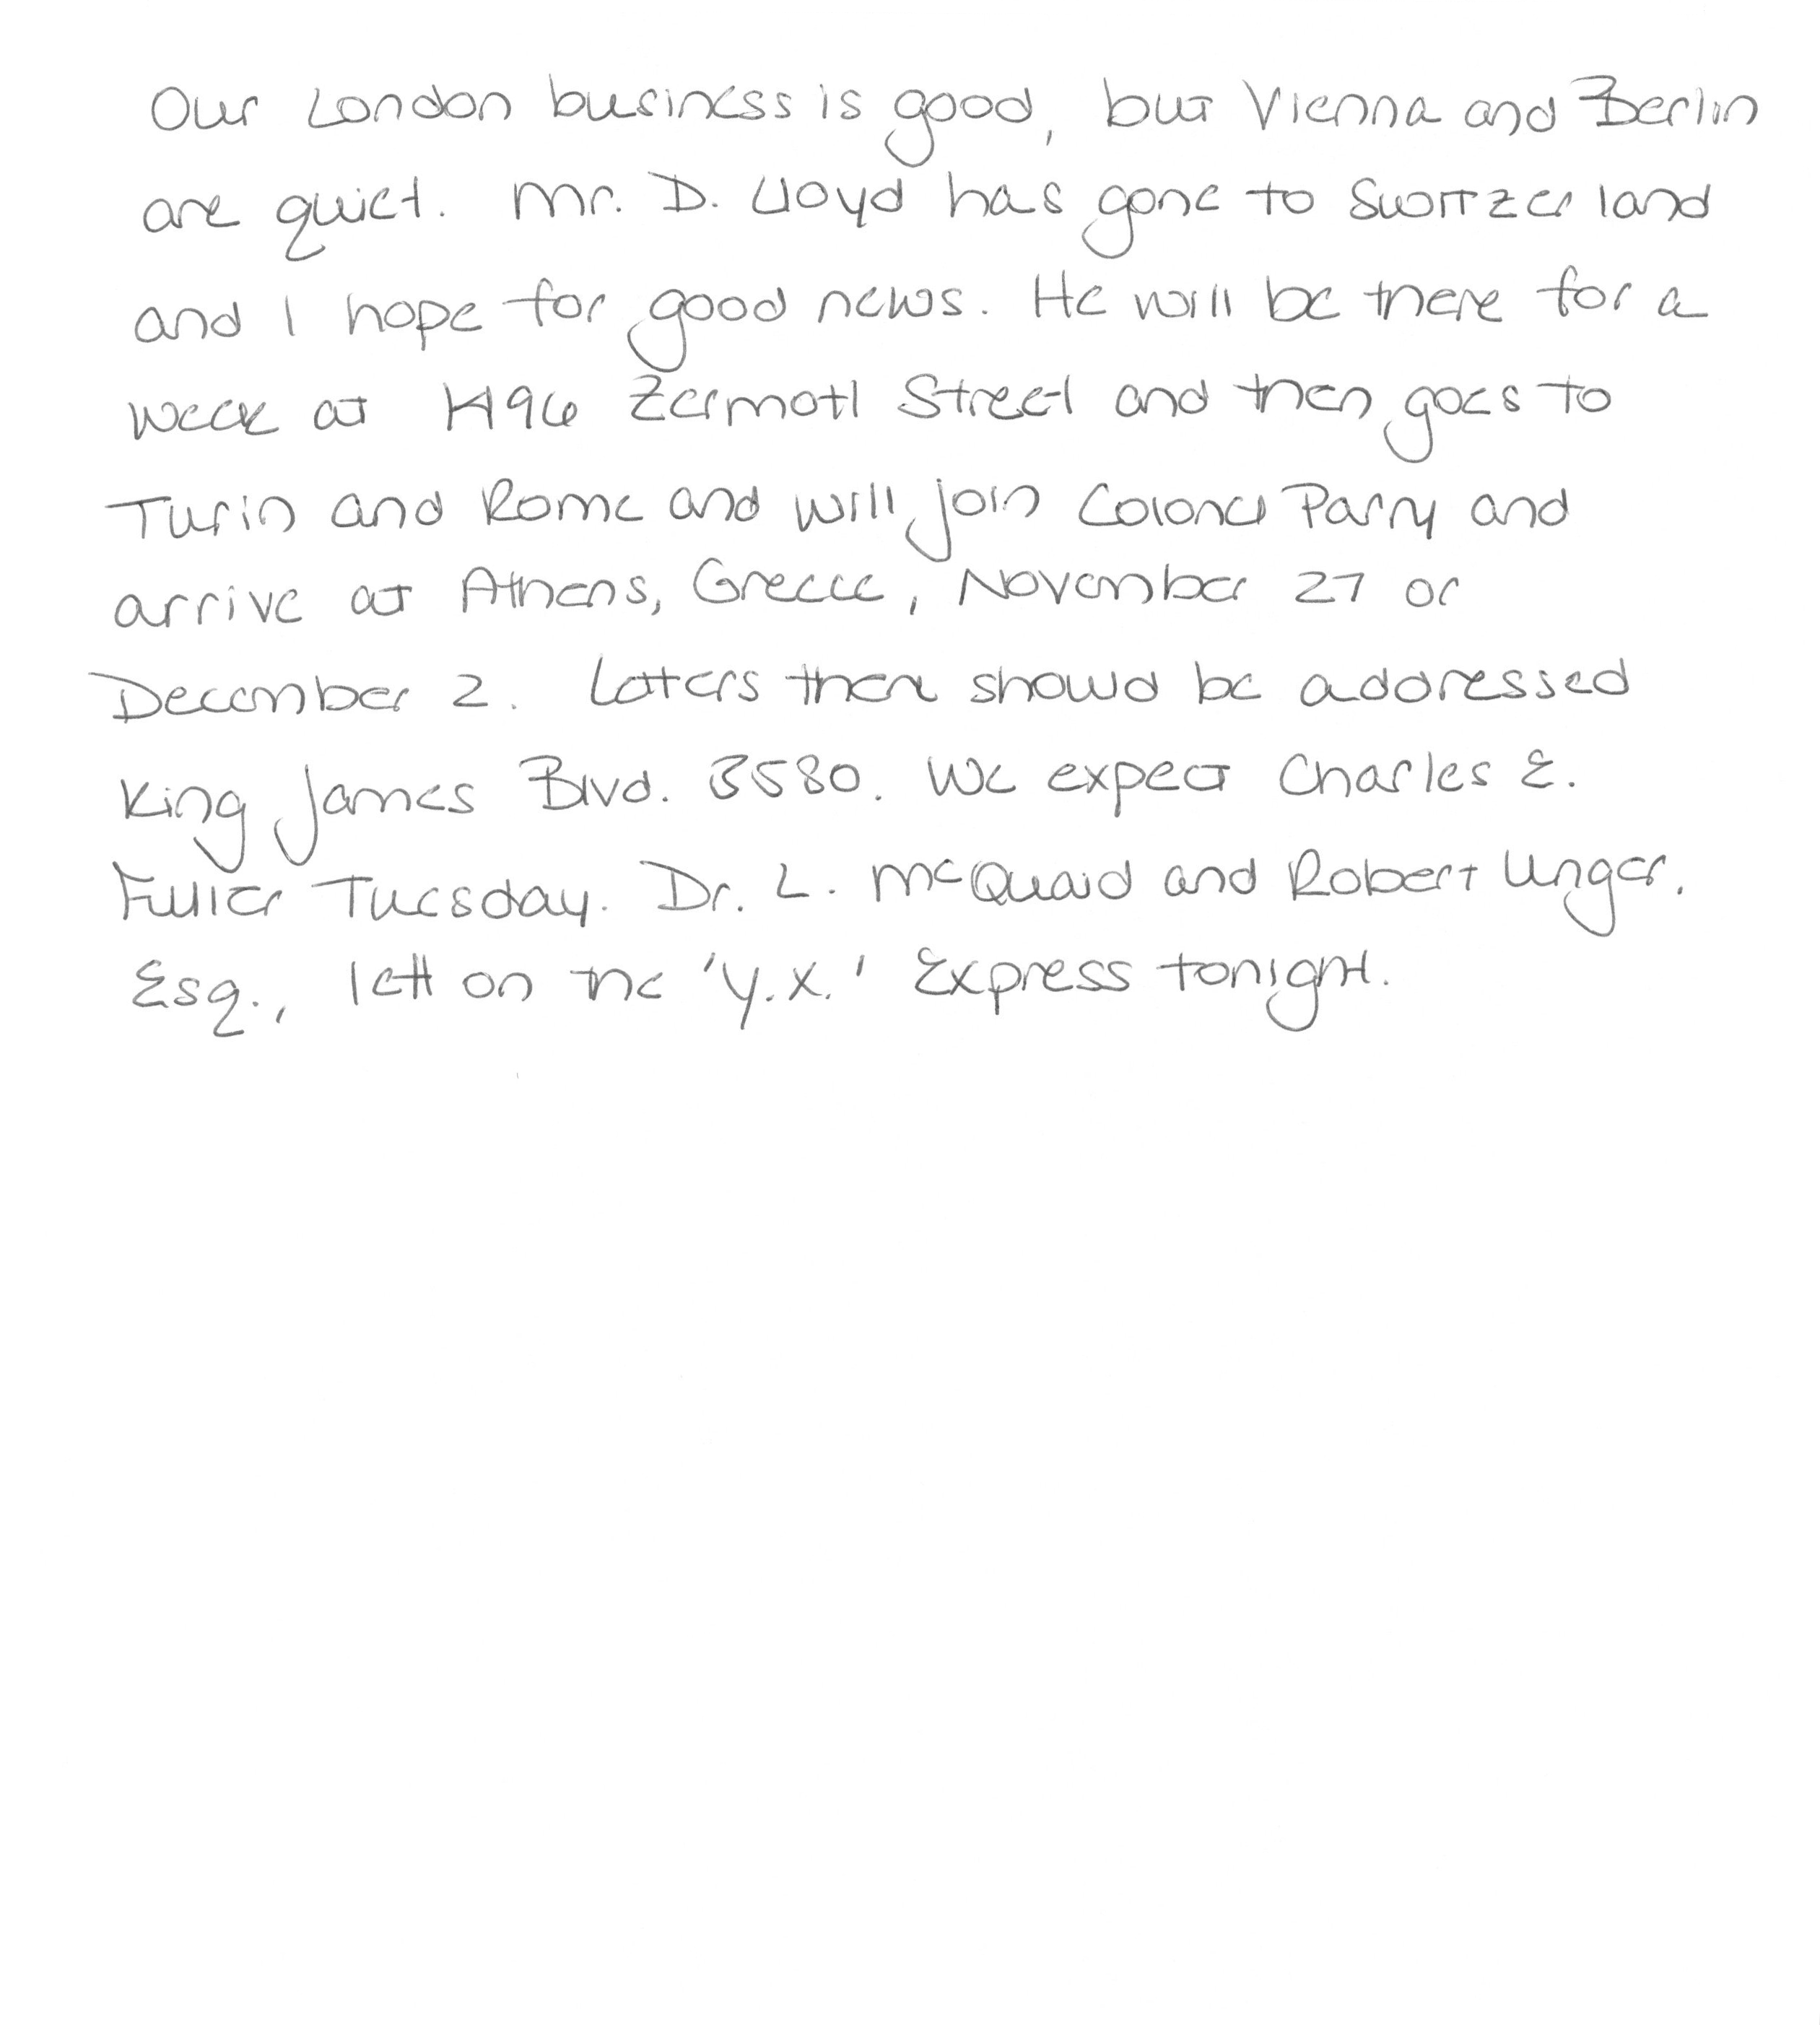 Our London business is good, but Vienna and Berlin
are quiet. Mr. D. Lloyd has gone to Switzerland
and I hope for good news. He will be there for a
week at 1496 Zermott Street and then goes to
Turin and Rome and will join Colonel Parry and
arrive at Athens, Greece, November 27 or
December 2. Letters there should be addressed
King James Blvd. 3580. We expect Charles E.
Fuller Tuesday. Dr. L. McQuaid and Robert Unger.
Esq., left on the 'Y.X.' Express tonight.